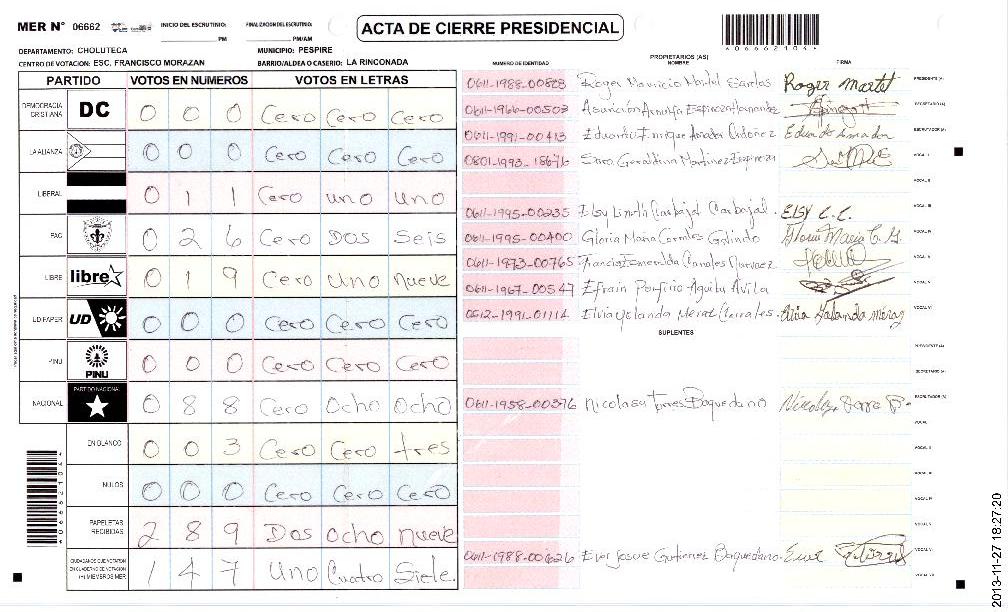 MER N° 06662 INICIO DEL ESCRUTINIO: PM FINALIZACION DEL ESCRUTINIO: PM/AM
ACTA DE CIERRE PRESIDENCIAL
DEPARTAMENTO: CHOLUTECA MUNICIPIO: PESPIRE
CENTRO DE VOTACION: ESC. FRANCISCO MORAZAN BARRIO/ALDEA O CASERIO: LA RINCONADA
PARTIDO VOTOS EN NUMEROS VOTOS EN LETRAS
DEMOCRACIA CRISTIANA DC 0 0 0 Cero Cero Cero
LA ALIANZA 0 0 0 Cero Cero Cero
LIBERAL 0 1 1 Cero uno Uno
PAC 0 2 6 Cero Dos Seis
LIBRE libre 0 1 9 Cero Uno nueve
UD/FAPER UD 0 0 0 Cero Cero Cero
PINU PINU 0 0 0 Cero Cero Cero
NACIONAL PARTIDO NACIONAL 0 8 8 Cero Ocho Ocho
EN BLANCO 0 0 3 Cero Cero tres
NULOS 0 0 0 Cero Cero Cero
PAPELETAS RECIBIDAS 2 8 9 Dos Ocho nueve
CIUDADANOS QUE VOTARON EN CUADERNO DE VOTACION (+) MIEMBROS MER 1 4 7 Uno Cuatro Siete.
PROPIETARIOS (AS)
NUMERO DE IDENTIDAD NOMBRE FIRMA
0611-1988-00828 Roger Mauricio Roger Martel PRESIDENTE (A)
0611-1966-00503 Asunción SECRETARIO (A)
0611-1991-00413 Eduardo Enrique Amador Ordoñez Eduardo Amador ESCRUTADOR (A)
0801-1993-18676 Geraldina Martinez Espinoza VOCAL I
VOCAL II
0611-1995-00235 Elsy Lineth Carbajal Carbajal. ELSY C.C. VOCAL III
0611-1995-00400 Gloria Maria Corrales Galindo Gloria Maria C. G. VOCAL IV
0611-1973-00765 Francis Esmerelda Canales Narvaez VOCAL V
0611-1967-00547 Efrain Porfirio Aguila Avila
0612-1991-01114 Elvia Yolanda
SUPLENTES
PRESIDENTE (A)
SECRETARIO (A)
0611-1958-00376 Nicolasa Torres Baquedano ESCRUTADOR (A)
VOCAL I
VOCAL II
VOCAL III
VOCAL IV
VOCAL V
0611-1988-00626 Ever Josue Gutierrez Baquedano VOCAL VI
VOCAL VII
2013-11-27 18:27:20